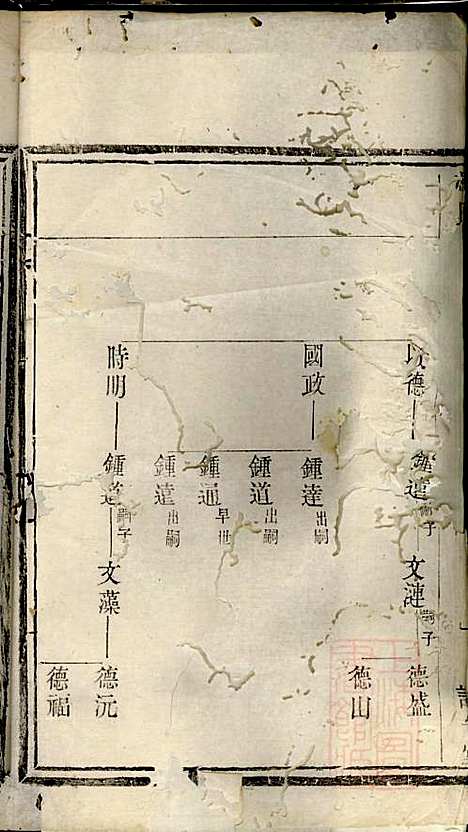 以德
鍾達嗣子
文漣嗣子
德盛
德山
國政
鍾達出嗣
鍾道出嗣
鍾通早世
鍾遠出嗣
時明
鍾道嗣子
文藻
德沅
德福